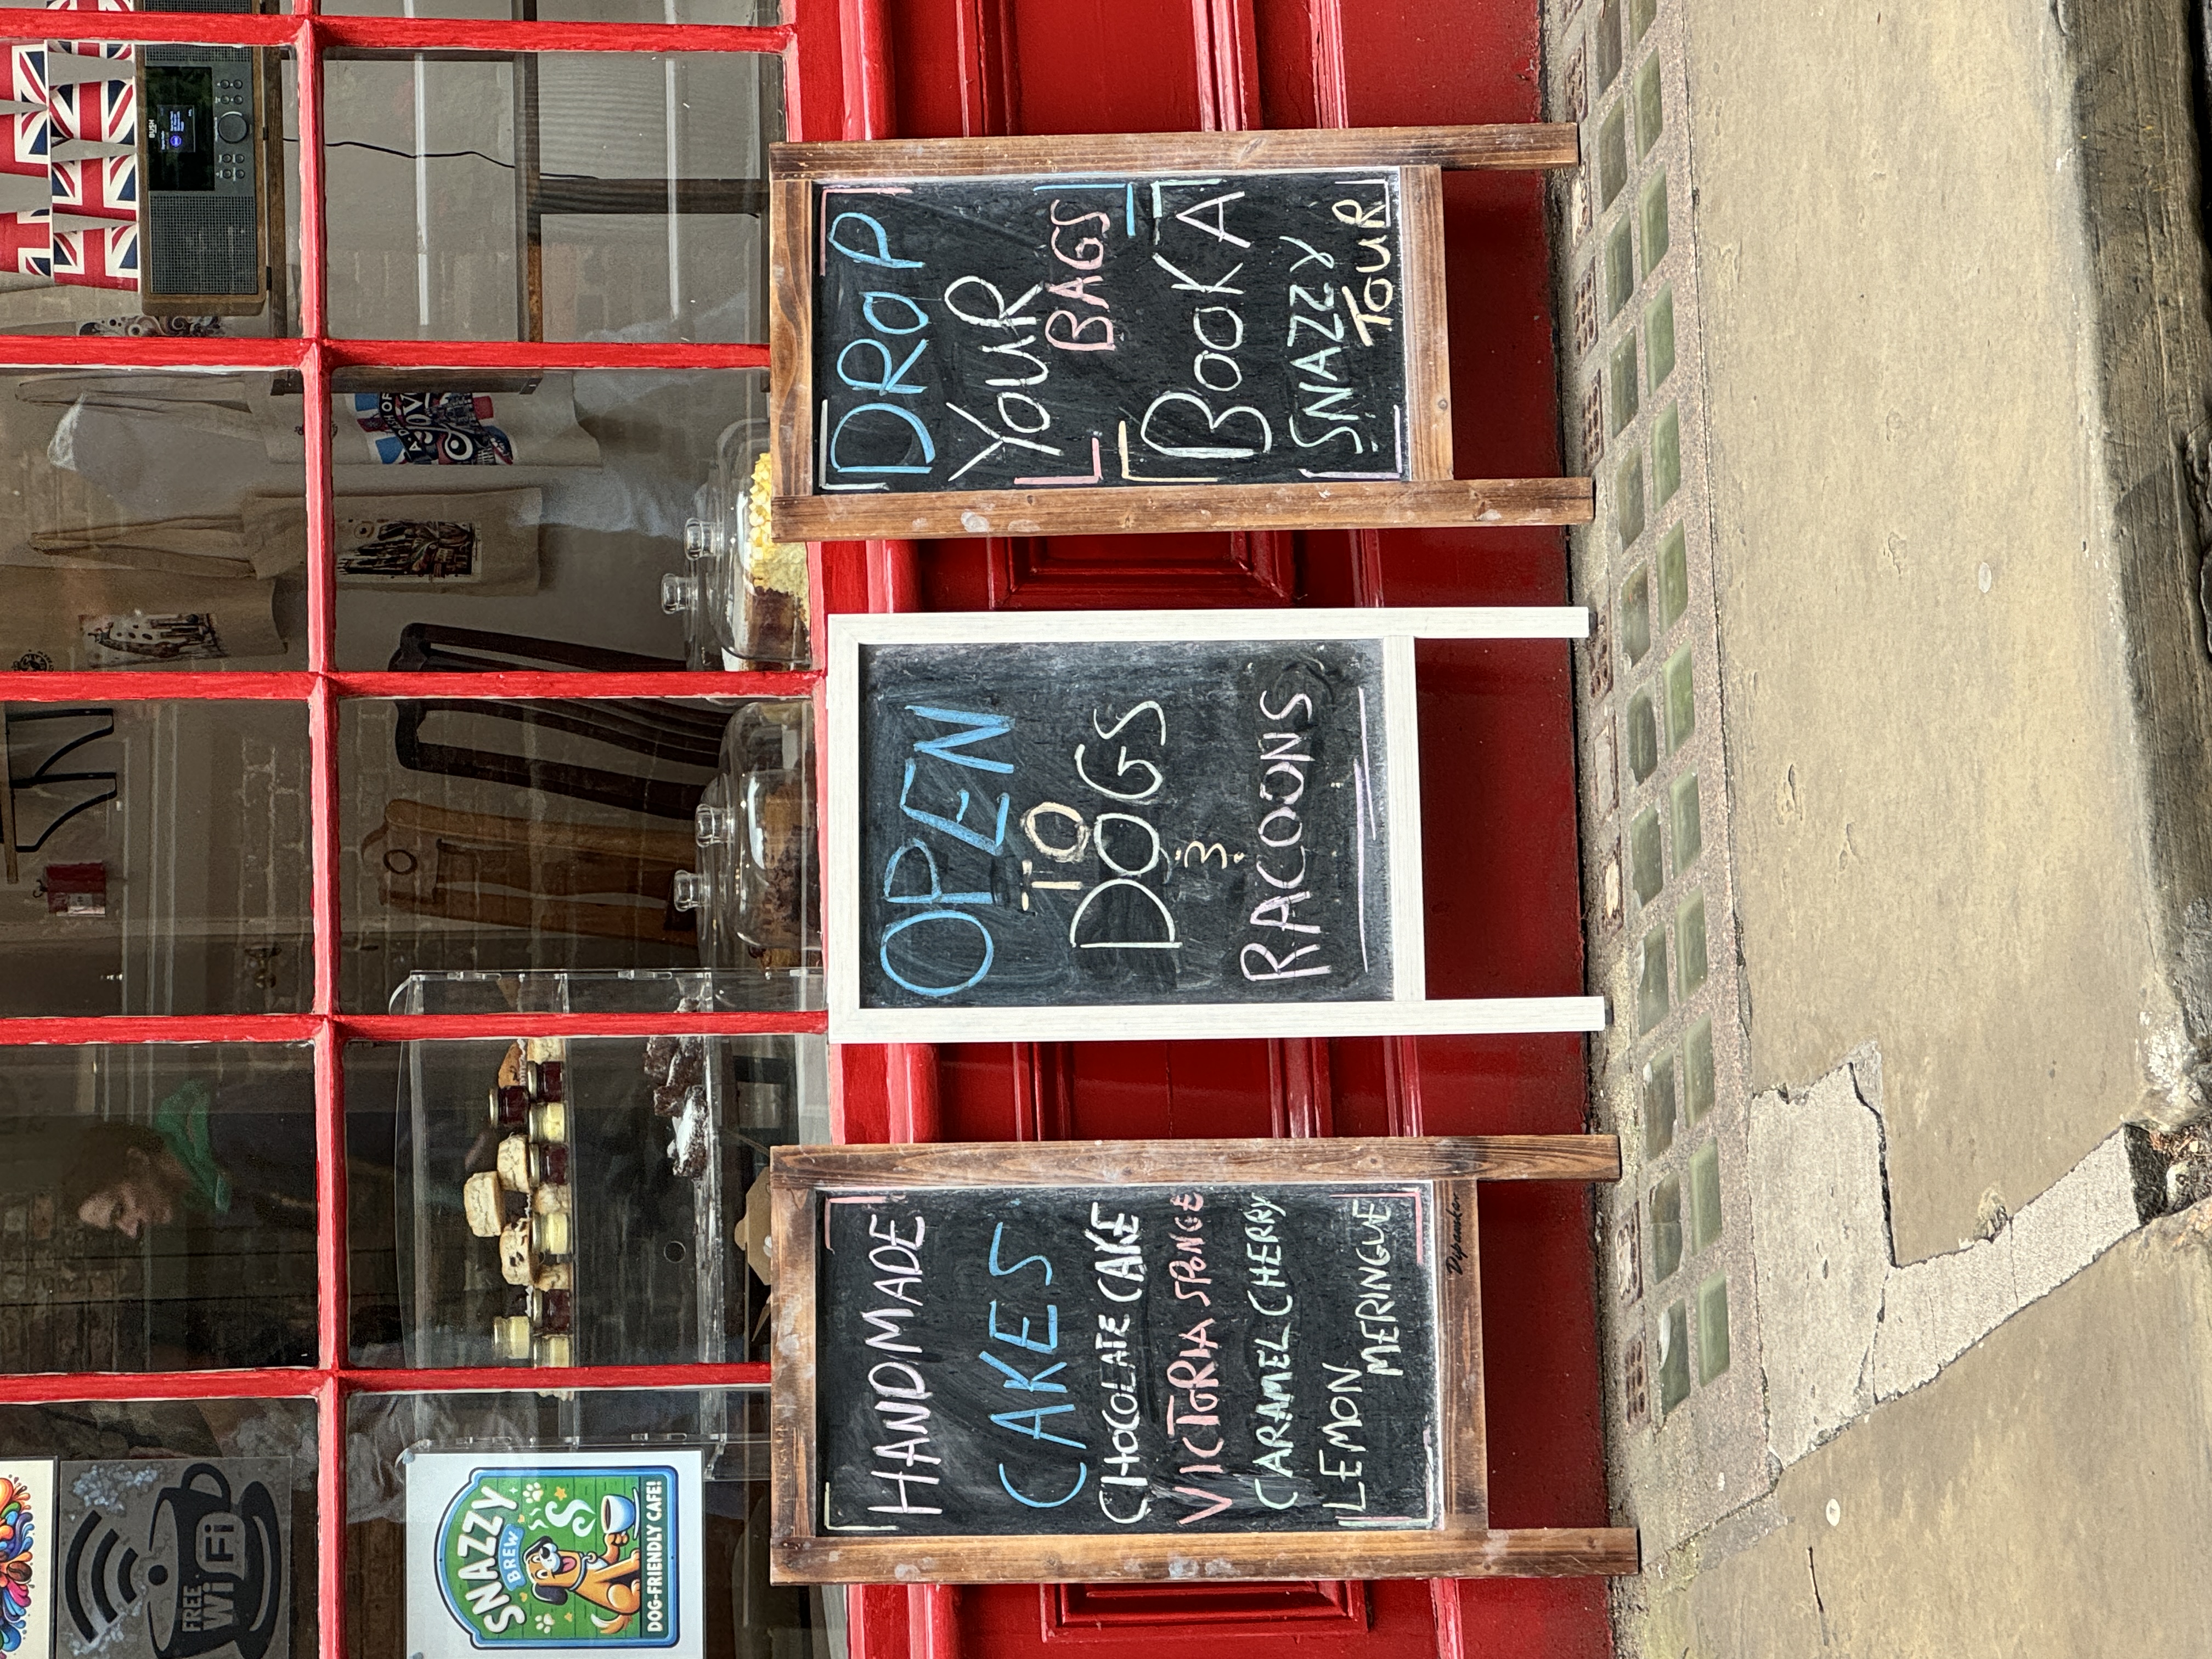 FREE
Wi Fi
SNAZZY
BREW
DOG-FRIENDLY CAFE!
BUSH
A DASH OF
HANDMADE
CAKES
CHOCOLATE CAKE
VICTORIA SPONGE
CARAMEL CHERRY
LEMON
MERINGUE
Dipamkar
OPEN
TO
DOGS
&
RACOONS
DROP
YOUR
BAGS
BOOK A
SNAZZY
TOUR